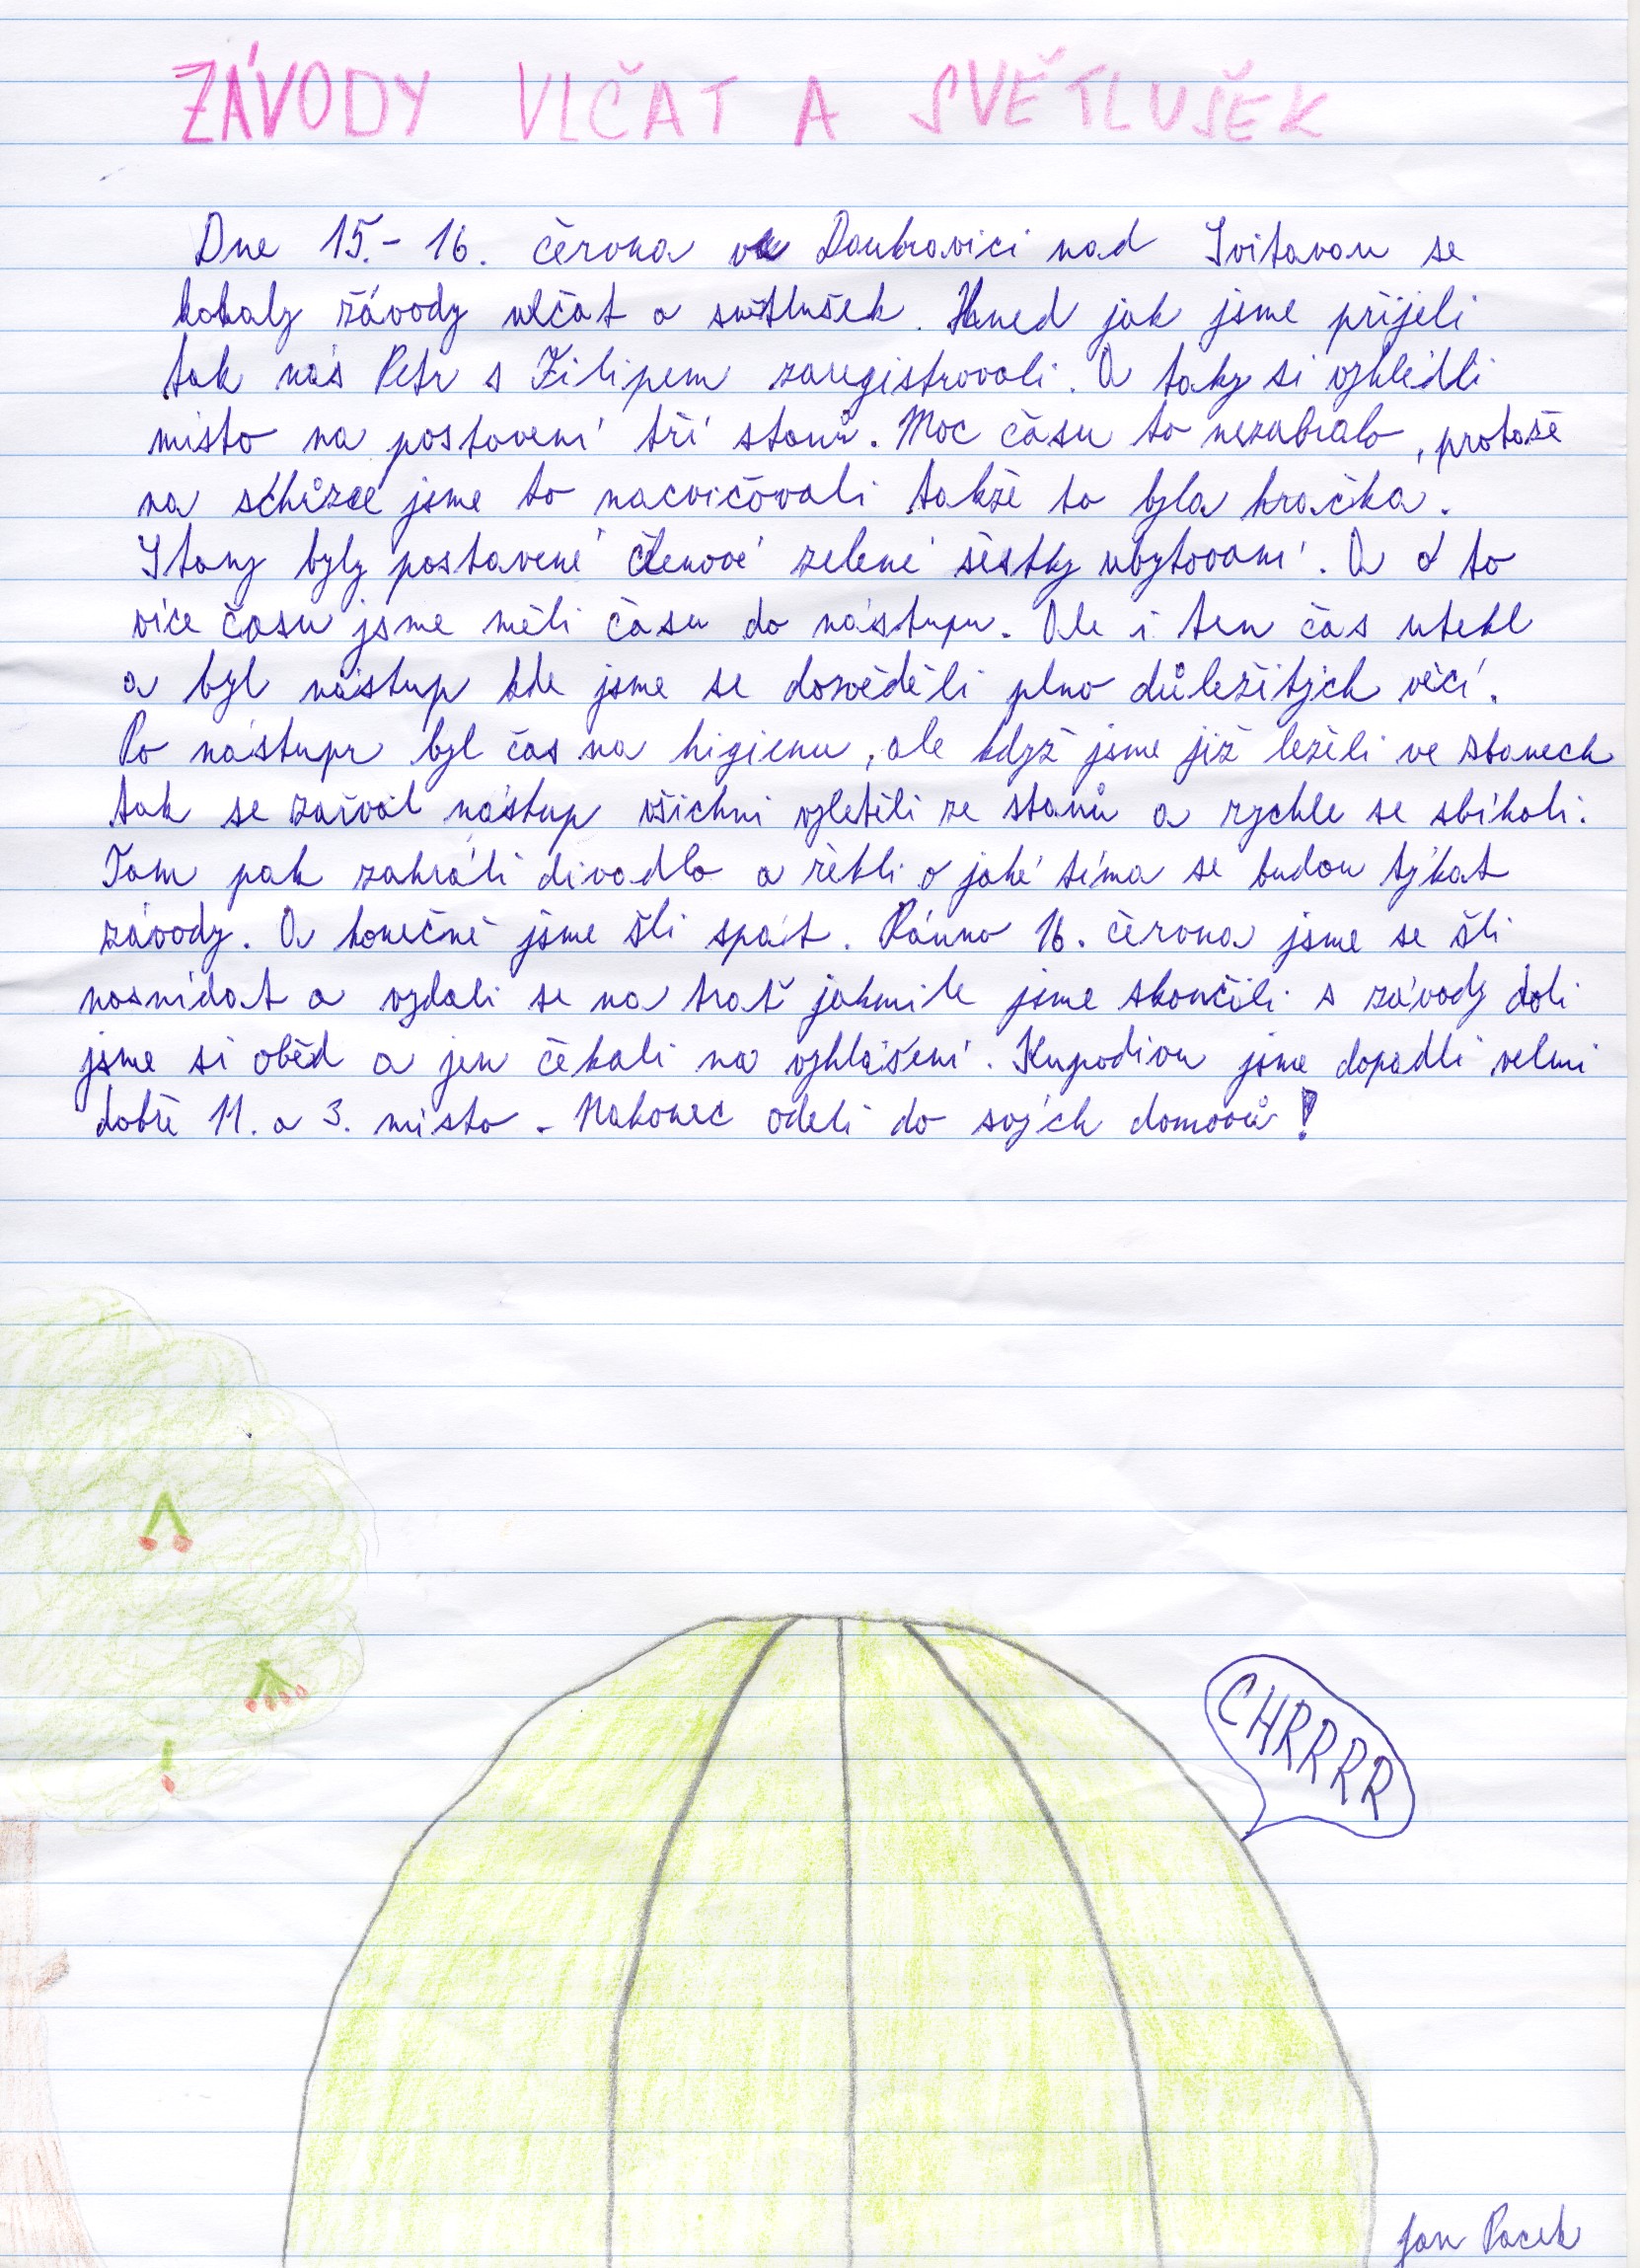 ZÁVODY VLČAT A SVĚTLUŠEK
Dne 15.- 16. června ve Doubravici nad Svitavou se
konaly závody vlčat a světlušek. Hned jak jsme přijeli
tak nás Petr s Filipem zaregistrovali. A taky si vyhlédli
místo na postavení tří stanů. Moc času to nezabralo, protože
na schůzce jsme to nacvičovali takže to byla hračka.
Stany byly postavené členové zelené šestky ubytovaní. A o to
více času jsme měli času do nástupu. Ale i ten čas utekl
a byl nástup kde jsme se dozvěděli plno důležitých věcí.
Po nástupu byl čas na higienu, ale když jsme již leželi ve stanech
tak se zařval nástup všichni vyletěli ze stanů a rychle se sbíhali.
Tam pak zahráli divadlo a řekli o jaké téma se budou týkat
závody. A konečně jsme šli spát. Ránno 16. června jsme se šli
nasnídat a vydali se na trať jakmile jsme skončili s závody dali
jsme si oběd a jen čekali na vyhlášení. Kupodivu jsme dopadli velmi
dobře 11. a 3. místo. Nakonec odeli do svých domovů!
CHRRRR
Jan Pacek